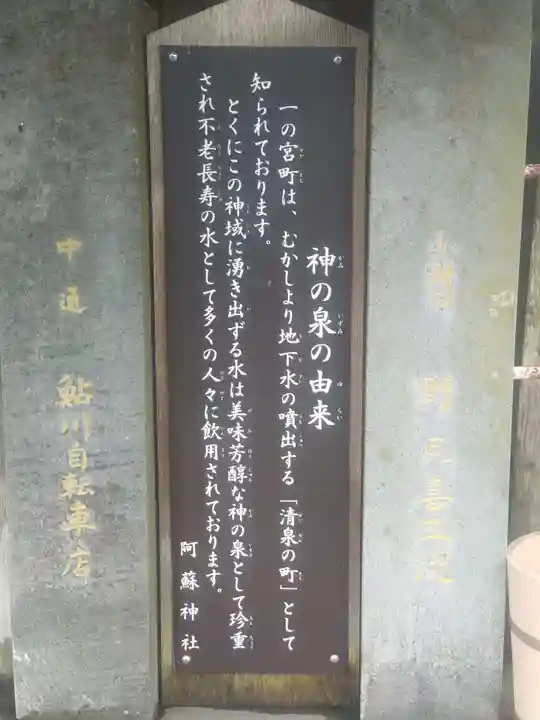 神の泉の由来
一の宮町は、むかしより地下水の噴出する「清泉の町」として
知られております。
とくにこの神域に湧き出ずる水は美味芳醇な神の泉として珍重
され不老長寿の水として多くの人々に飲用されております。
阿蘇神社
中通 鮎川自転車店